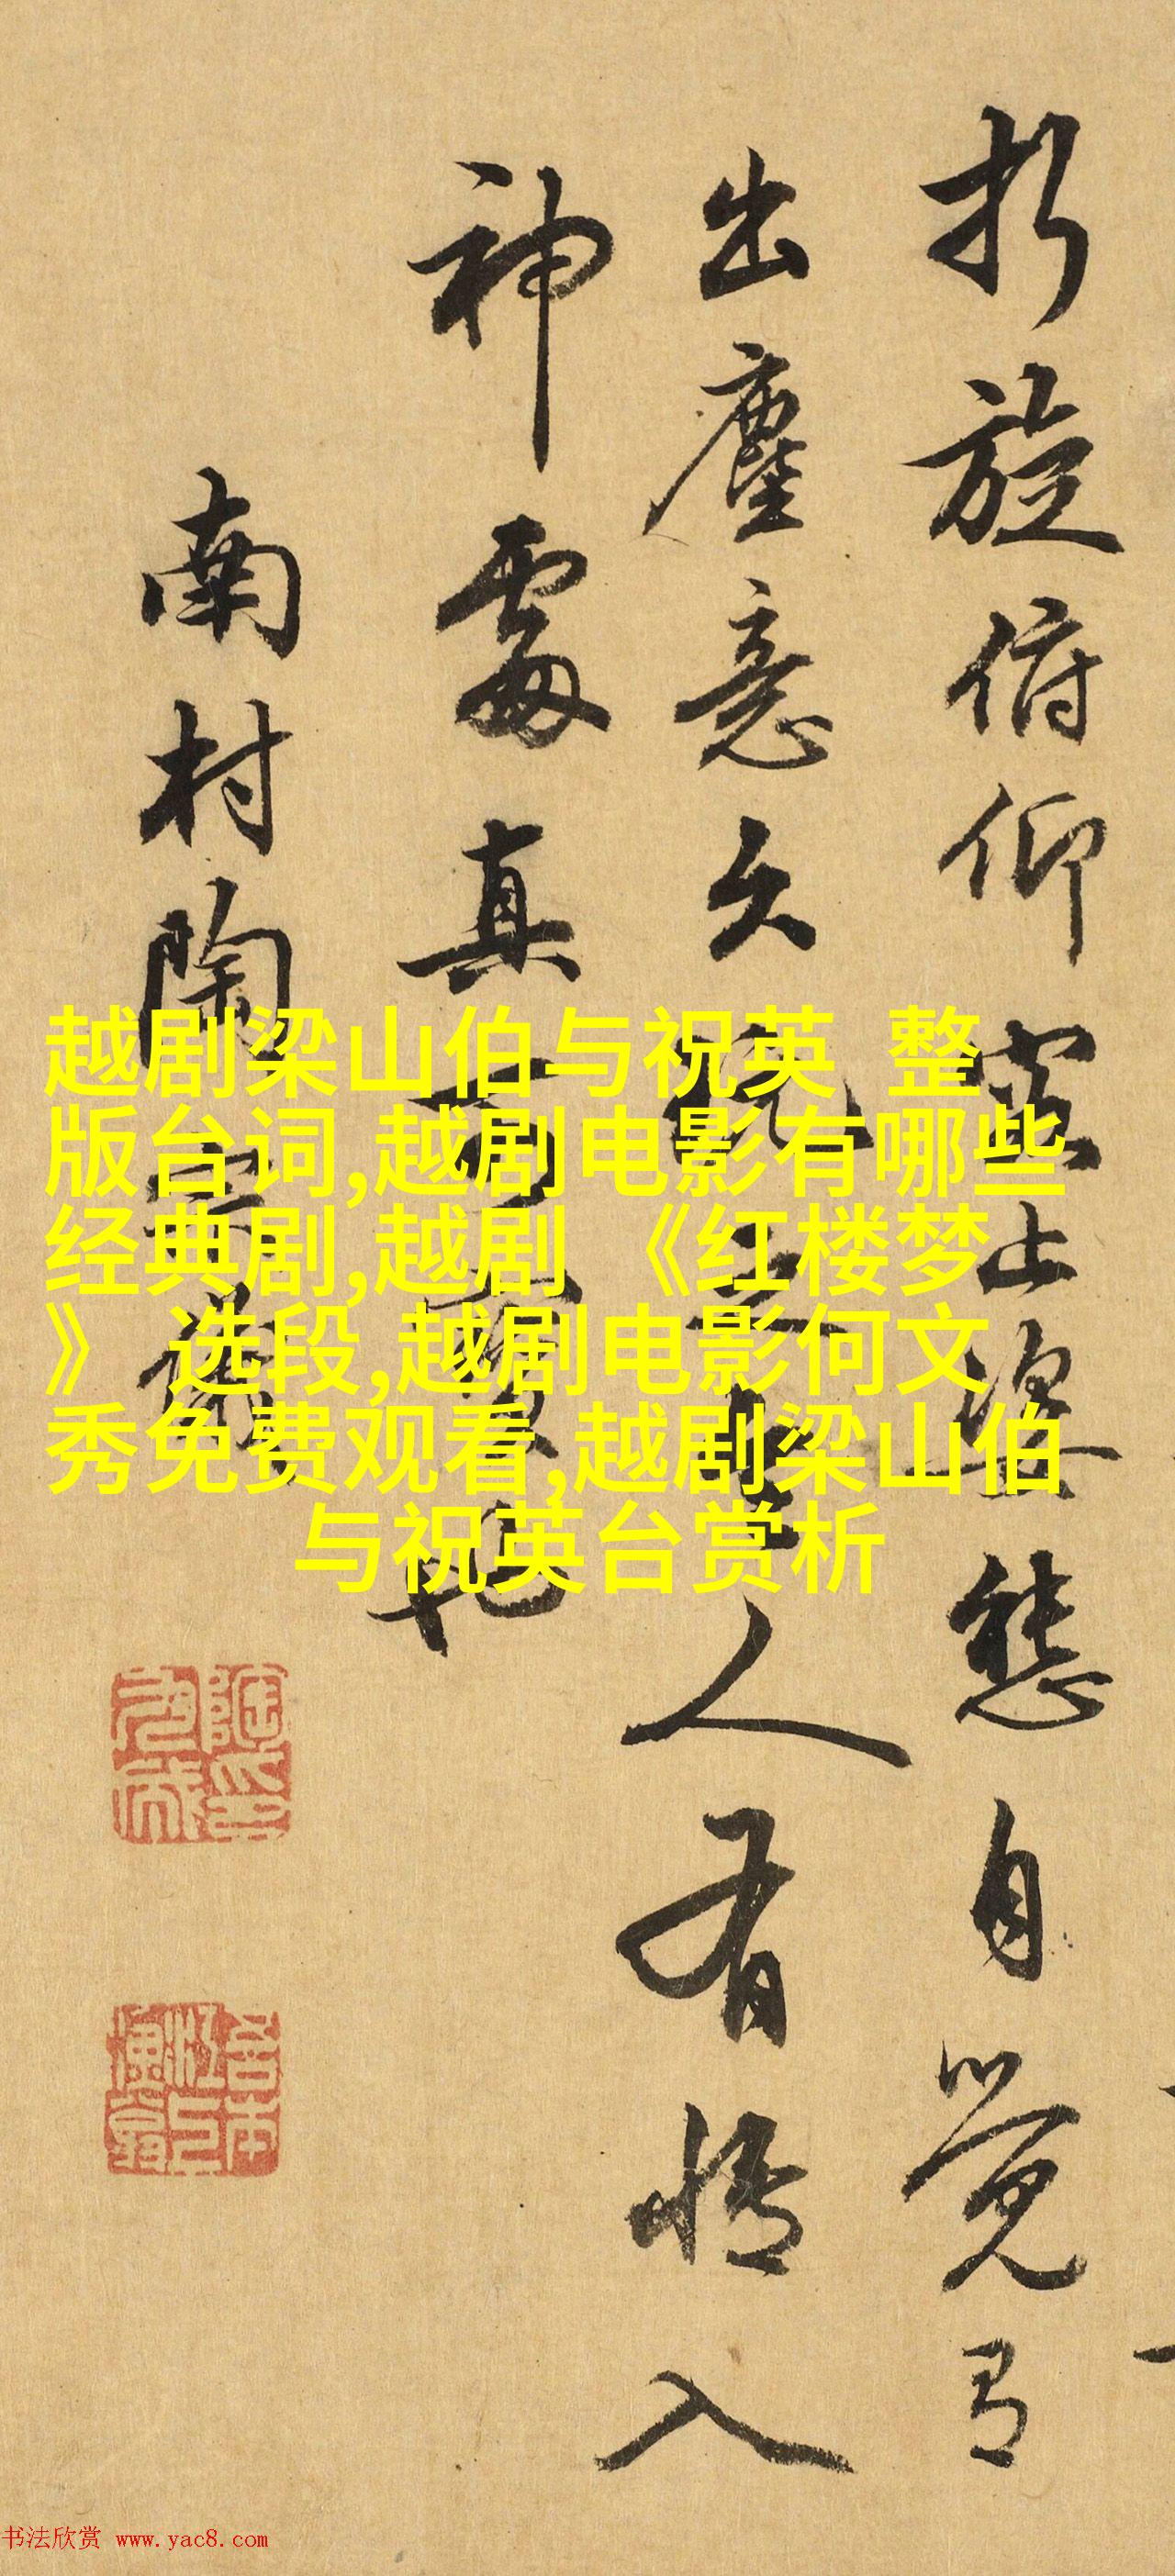 折旋俯仰容止姿態自覺有
出塵意久玩之令人有情入
神處真可寶也
南村陶宗儀
越剧梁山伯与祝英 整
版台词,越剧电影有哪些
经典剧,越剧 《红楼梦
》 选段,越剧电影何文
秀免费观看,越剧梁山伯
与祝英台赏析
书法欣赏 www.yac8.com